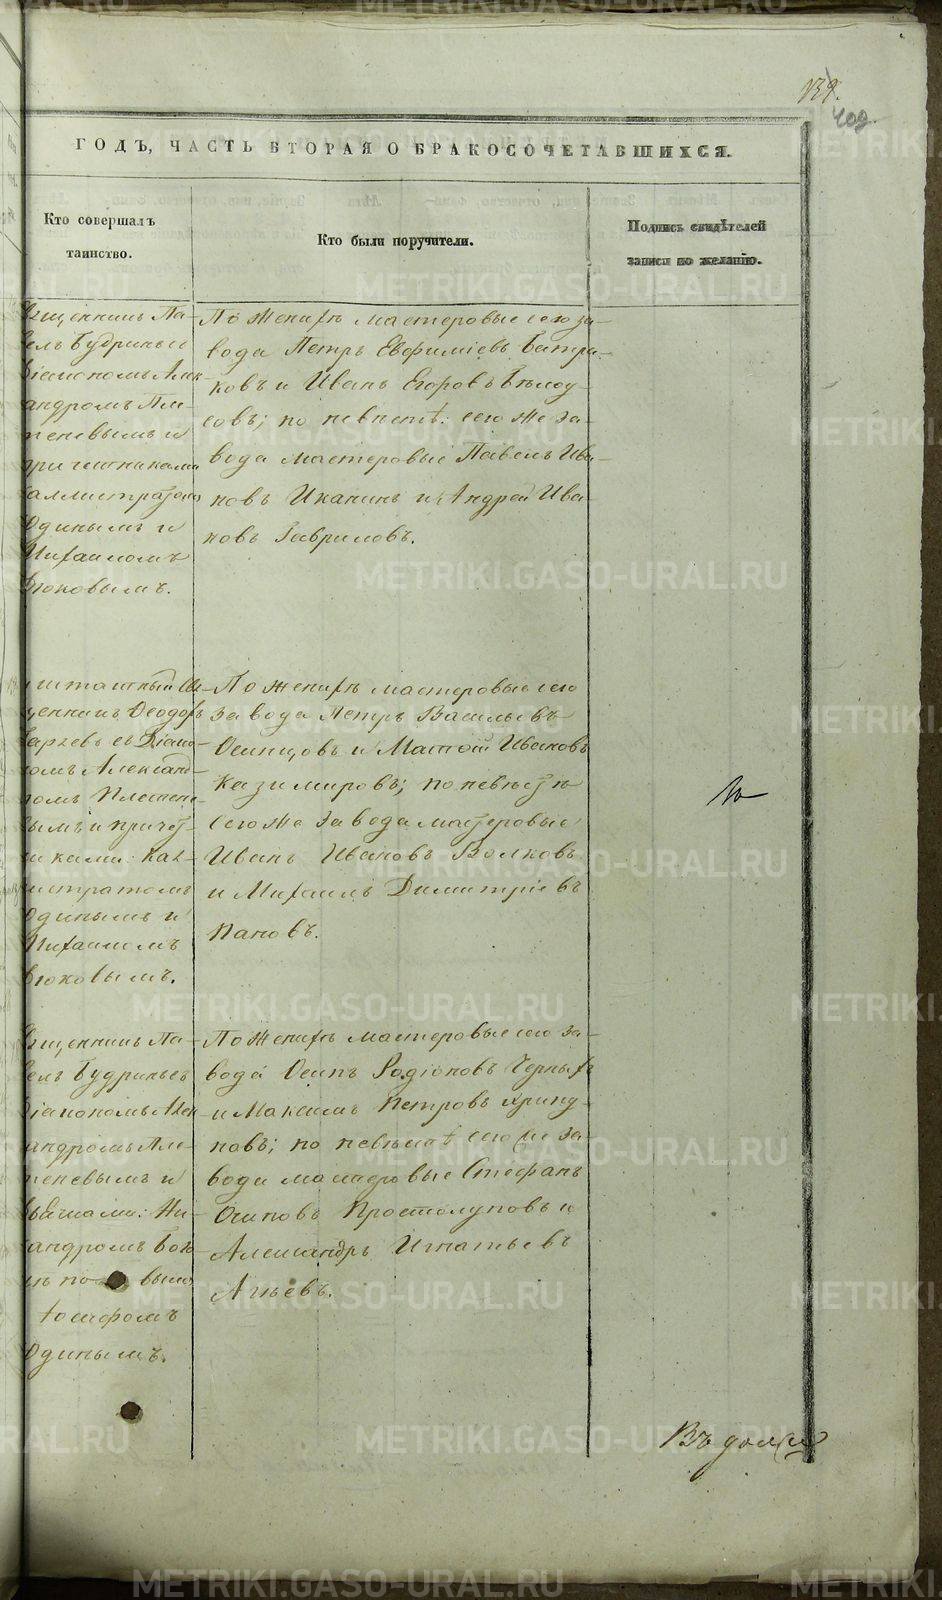 139.
409.
ГОДЪ, ЧАСТЬ ВТОРАЯ О БРАКОСОЧЕТАВШИХСЯ.
Кто совершалъ
таинство.
Кто были поручители.
Подпись свидѣтелей
записи по желанію.
щенникъ Па-
елъ Будринъ съ
діакономъ Алек-
андромъ Пле-
теневымъ и
причетниками
аллистратомъ
Одинымъ и
Михаиломъ
По женихѣ мастеровые сего за-
вода Петръ Евфиміевъ Батра-
ковъ и Иванъ Егоровъ Бѣлоу-
совъ; по невѣстѣ: сего же за-
вода мастеровые Павелъ Ива-
новъ Иканинъ и Андрей Ива
новъ Гавриловъ.
щенникъ Ѳеодоръ
съ Діако-
номъ Александ-
ромъ Плетене-
вымъ и причет-
никами: Кал-
истратомъ
Одинымъ и
Михаиломъ
По женихѣ мастеровые сего
завода Петръ Васильевъ
Осинцовъ и Матѳій Ивановъ
Казимировъ; по невѣстѣ
сего же завода мастеровые
Иванъ Ивановъ Волковъ
и Михаилъ Димитріевъ
Пановъ.
щенникъ Па-
елъ Будринъ съ
діакономъ Алек
андромъ Пле-
теневымъ и
Ни-
андромъ
вымъ
Іосифомъ
Одинымъ.
По женихѣ мастеровые сего за-
вода Осипъ Родіоновъ Черныхъ
и Максимъ Петровъ Хрипу-
новъ; по невѣстѣ сего же за-
вода мастеровые Стефанъ
Осиповъ Простолуповъ и
Александръ Игнатьевъ
Агѣевъ.
METRIKI.GASO-URAL.RU